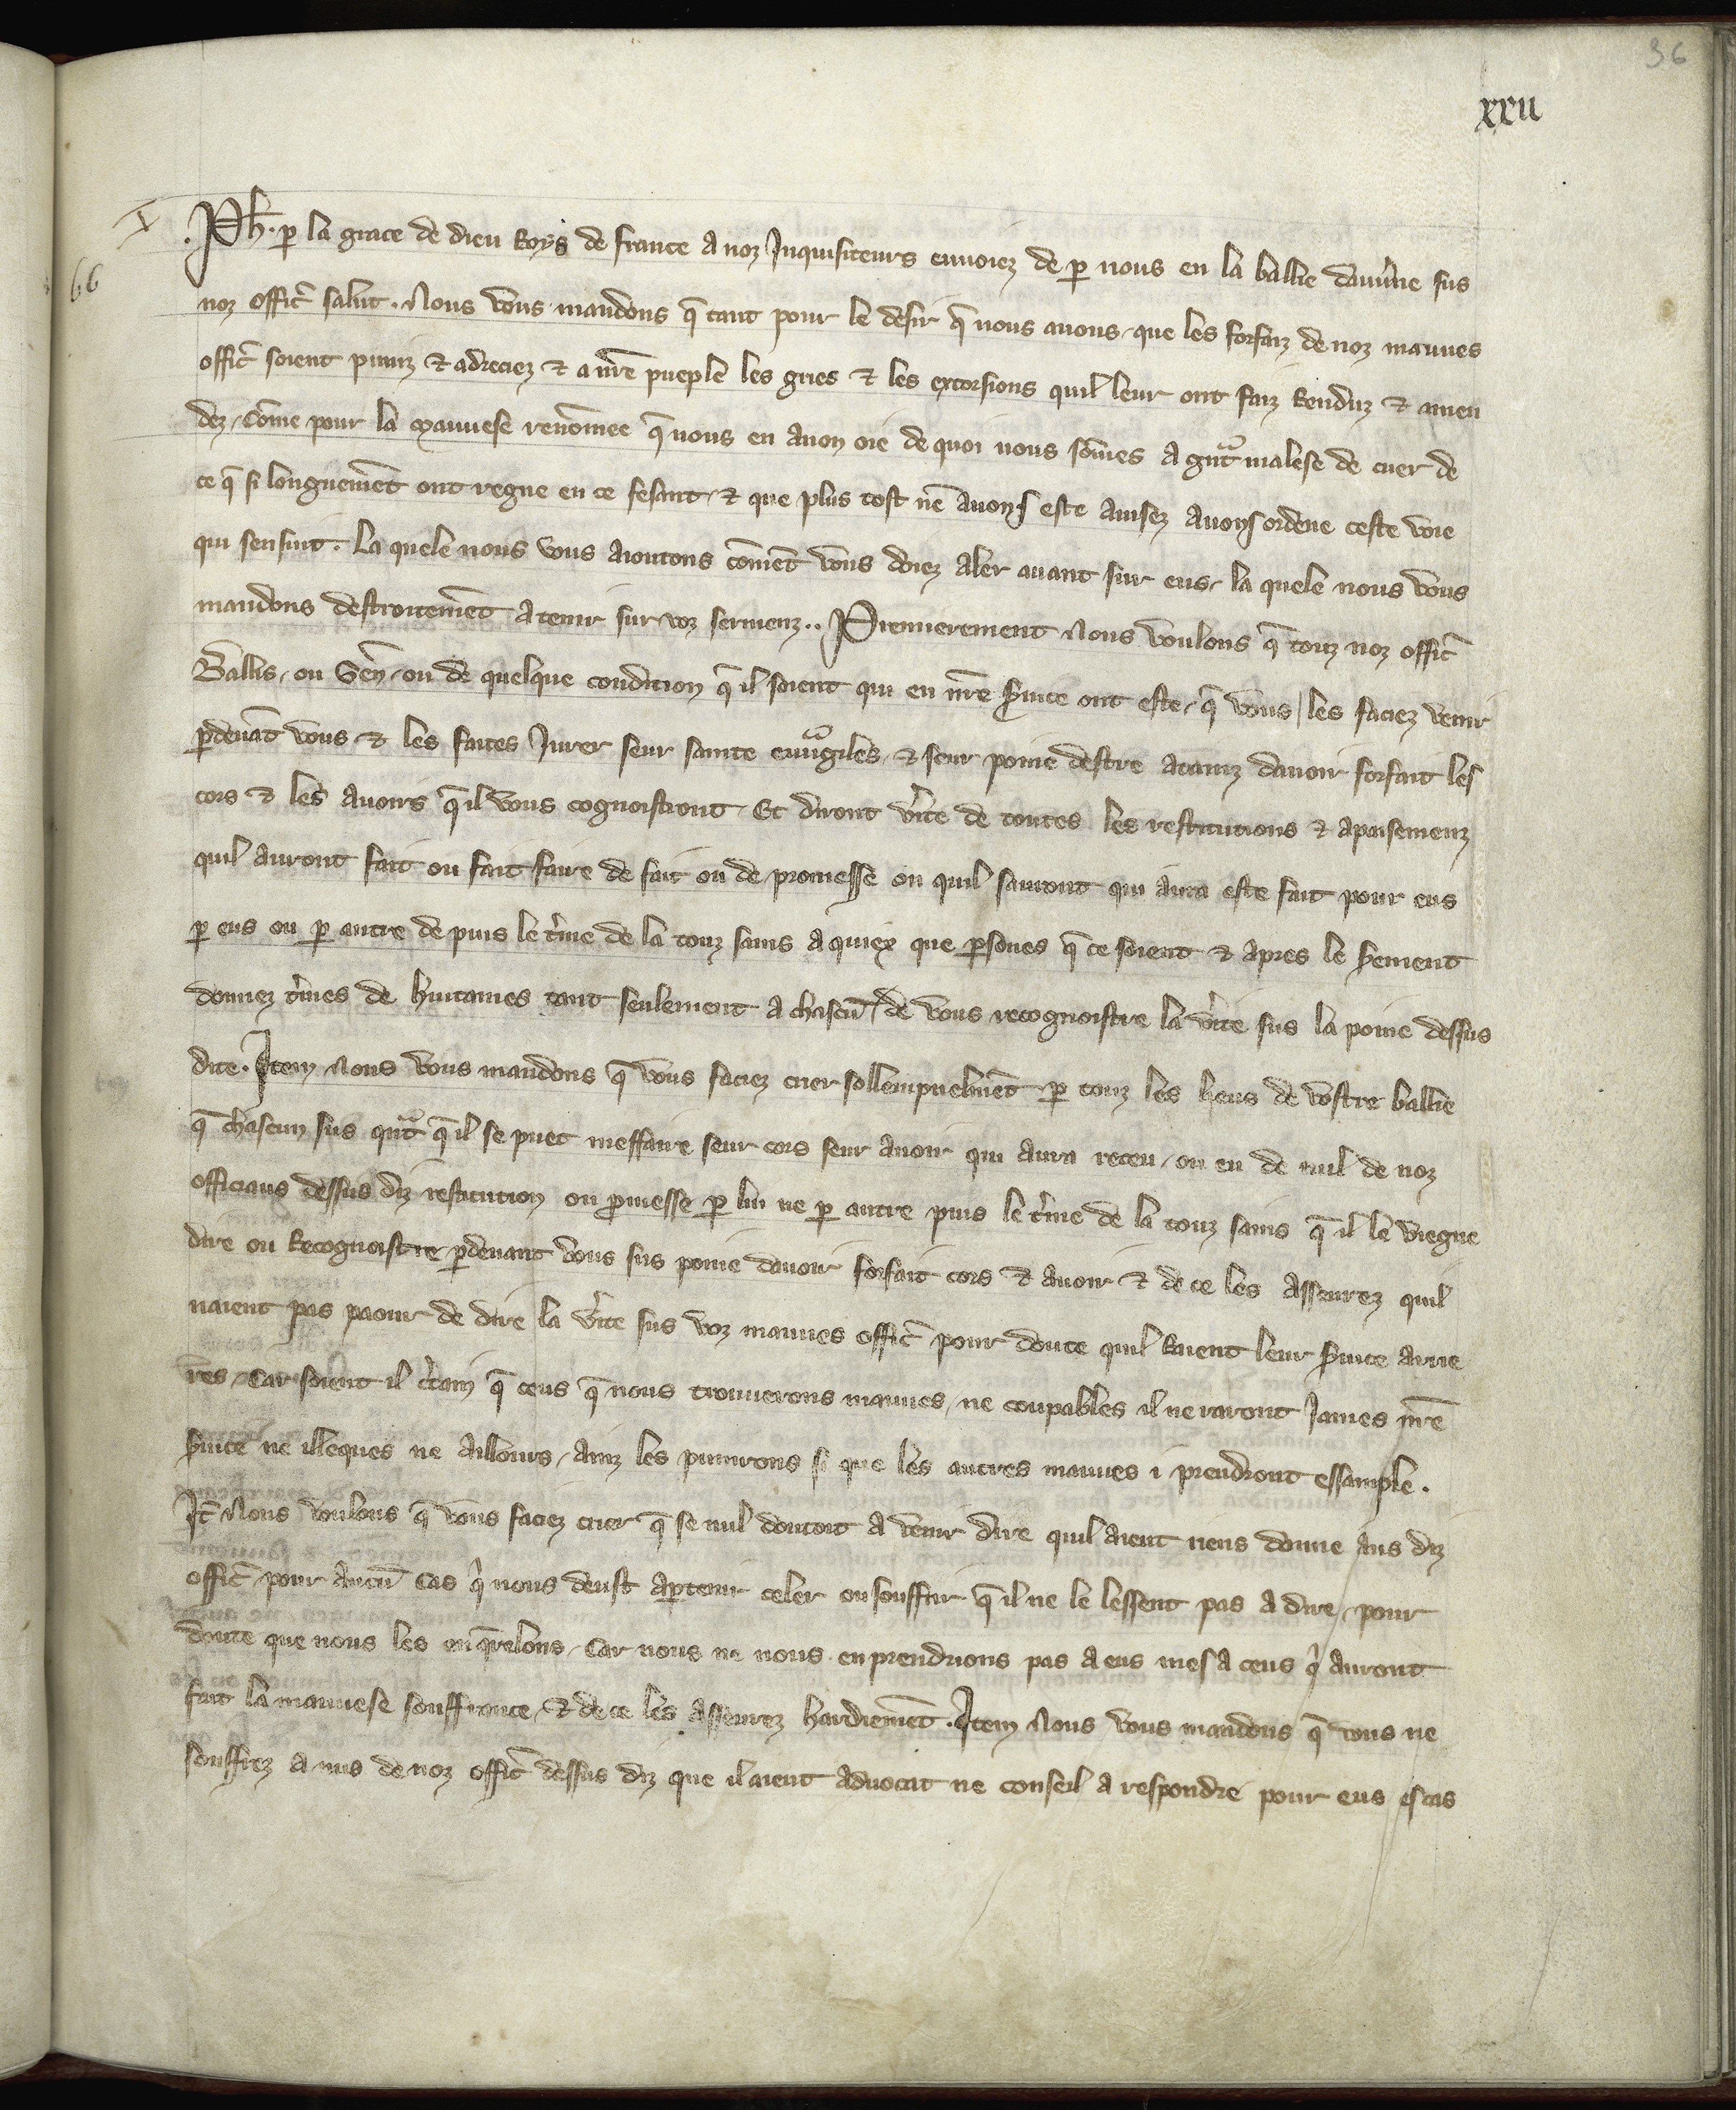 36
xxii
66
.Ph. p̲ la grace de dieu Roys de france a noz Inquisiteurs envoiez de p̲ nous en la baillie dauu̾ne sus
noz offic̃ salut. Nous vous mandons q̃ tant pour le desir q̃ nous auons, que les forfaiz de noz mauues
offic̃ soient puniz et adreciez et a nr̃e pueple les gries et les extorsions quil leur ont faiz Renduz et amen
dez. Com̃e pour la mauuese renom̃ee q̃ nous en auon oie de quoi nous som̃es a gnt malese de cuer de
ce q̃ si longuemẽt ont regne en ce fesant, et que plus tost nẽ auons este auisez auons ordene ceste voie
qui sensuit. La quele nous vous aioutons com̃ent vous doiez aler auant sur eus, la quele nous vous
mandons destroitemẽt a tenir sur voz sermenz.. Premierement nous voulons q̃ touz noz offic̃
Baillis, ou Sen̄, ou de quelque condition q̃ il soient qui en nr̃e s̃uice ont este, q̃ vous les faciez venir
p̲deuãt vous, et les faites Jurer seur sainte euuãgiles, et seur poine destre atainz dauoir forfait les
cors et les auoirs q̃ il vous cognoistront, Et diront v̾ite de toutes les restitutions et apaisemenz
quil auront fait ou fait faire de fait ou de promesse ou quil sauront qui aura este fait pour eus
p̲ eus ou p̲ autre de puis le t̾me de la touz sains a quiex que p̲sones q̃ ce soient et apres le s̾ement
donnez t̾mes de huitaines tant seulement a chascũ, de vous recognoistre la v̾ite sus la poine dessus
dite. Item Nous vous mandons q̃ vous faciez crier sollempnelmẽt p̲ touz les lieus de vostre baillie
q̃ chascun sus qnt q̃ il se puet meffaire seur cors seur auoir qui aura receu, ou eu de nul de noz
officiaus dessus diz restitution ou p̾messe p̲ lui ne p̲ autre puis le t̾me de la touz sains q̃ il le viegne
dire ou Recognoistre p̲deuant vous sus poine dauoir forfait cors et auoir et de ce les asseurez quil
naient pas paour de dire la v̾ite sus voz mauues offic̃ pour doute quil Raient leur s̾uice arrie
res, Car soient il c̾tain q̃ ceus q̃ nous trouuerons mauues, ne coupables il ne raront James nr̃e
s̾uice ne illeques ne aillours, ainz les punirons si que les autres mauues i prendront essample.
It̃ Nous voulons q̃ vous faciez crier q̃ se nul doutoit a venir dire quil aient riens donne aus diz
offic̃ pour aucũ cas q̾ nous deust ap̲tenir celer ou souffrir q̃ il ne le lessent pas a dire, pour
doute que nous les en q̾relons, Car nous ne nous en prendrions pas a eus mes a ceus q̾ auront
fait la mauuese souffrance, et de ce les asseurez hardiemẽt. Item Nous vous mandons q̃ vous ne
souffrez a nus de noz offic̃ dessus diz que il aient aduocat ne conseil a respondre pour eus es cas